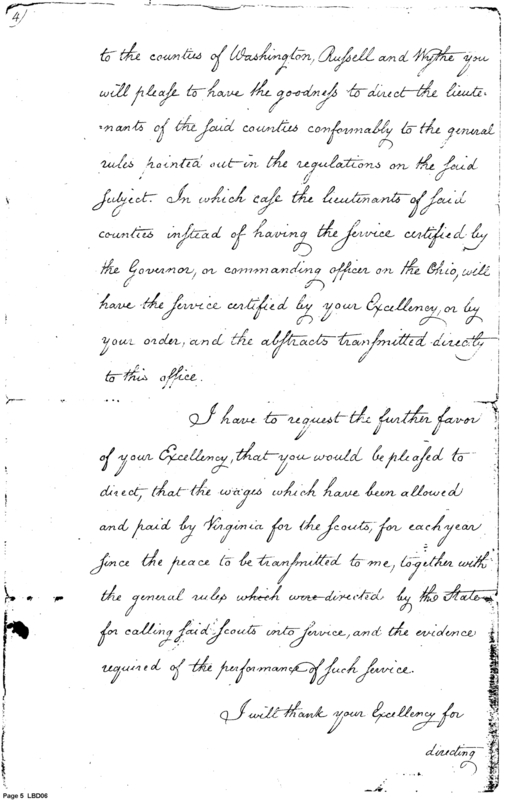 4)
to the counties of Washington, Russell and Wythe you
will please to have the goodness to direct the lieute-
-nants of the said counties conformably to the general
rules pointed out in the regulations on the said
subject. In which case the lieutenants of said
counties instead of having the service certified by
the Governor, or commanding officer on the Ohio, will
have the service certified by your Excellency, or by
your order, and the abstracts transmitted directly
to this office.
I have to request the further favor
of your Excellency, that you would be pleased to
direct, that the wages which have been allowed
and paid by Virginia for the Scouts, for each year
since the peace to be transmitted to me, together with
the general rules which were directed by the State
for calling said Scouts into service, and the evidence
required of the performance of such service.
I will thank your Excellency for
directing
Page 5 LBD06